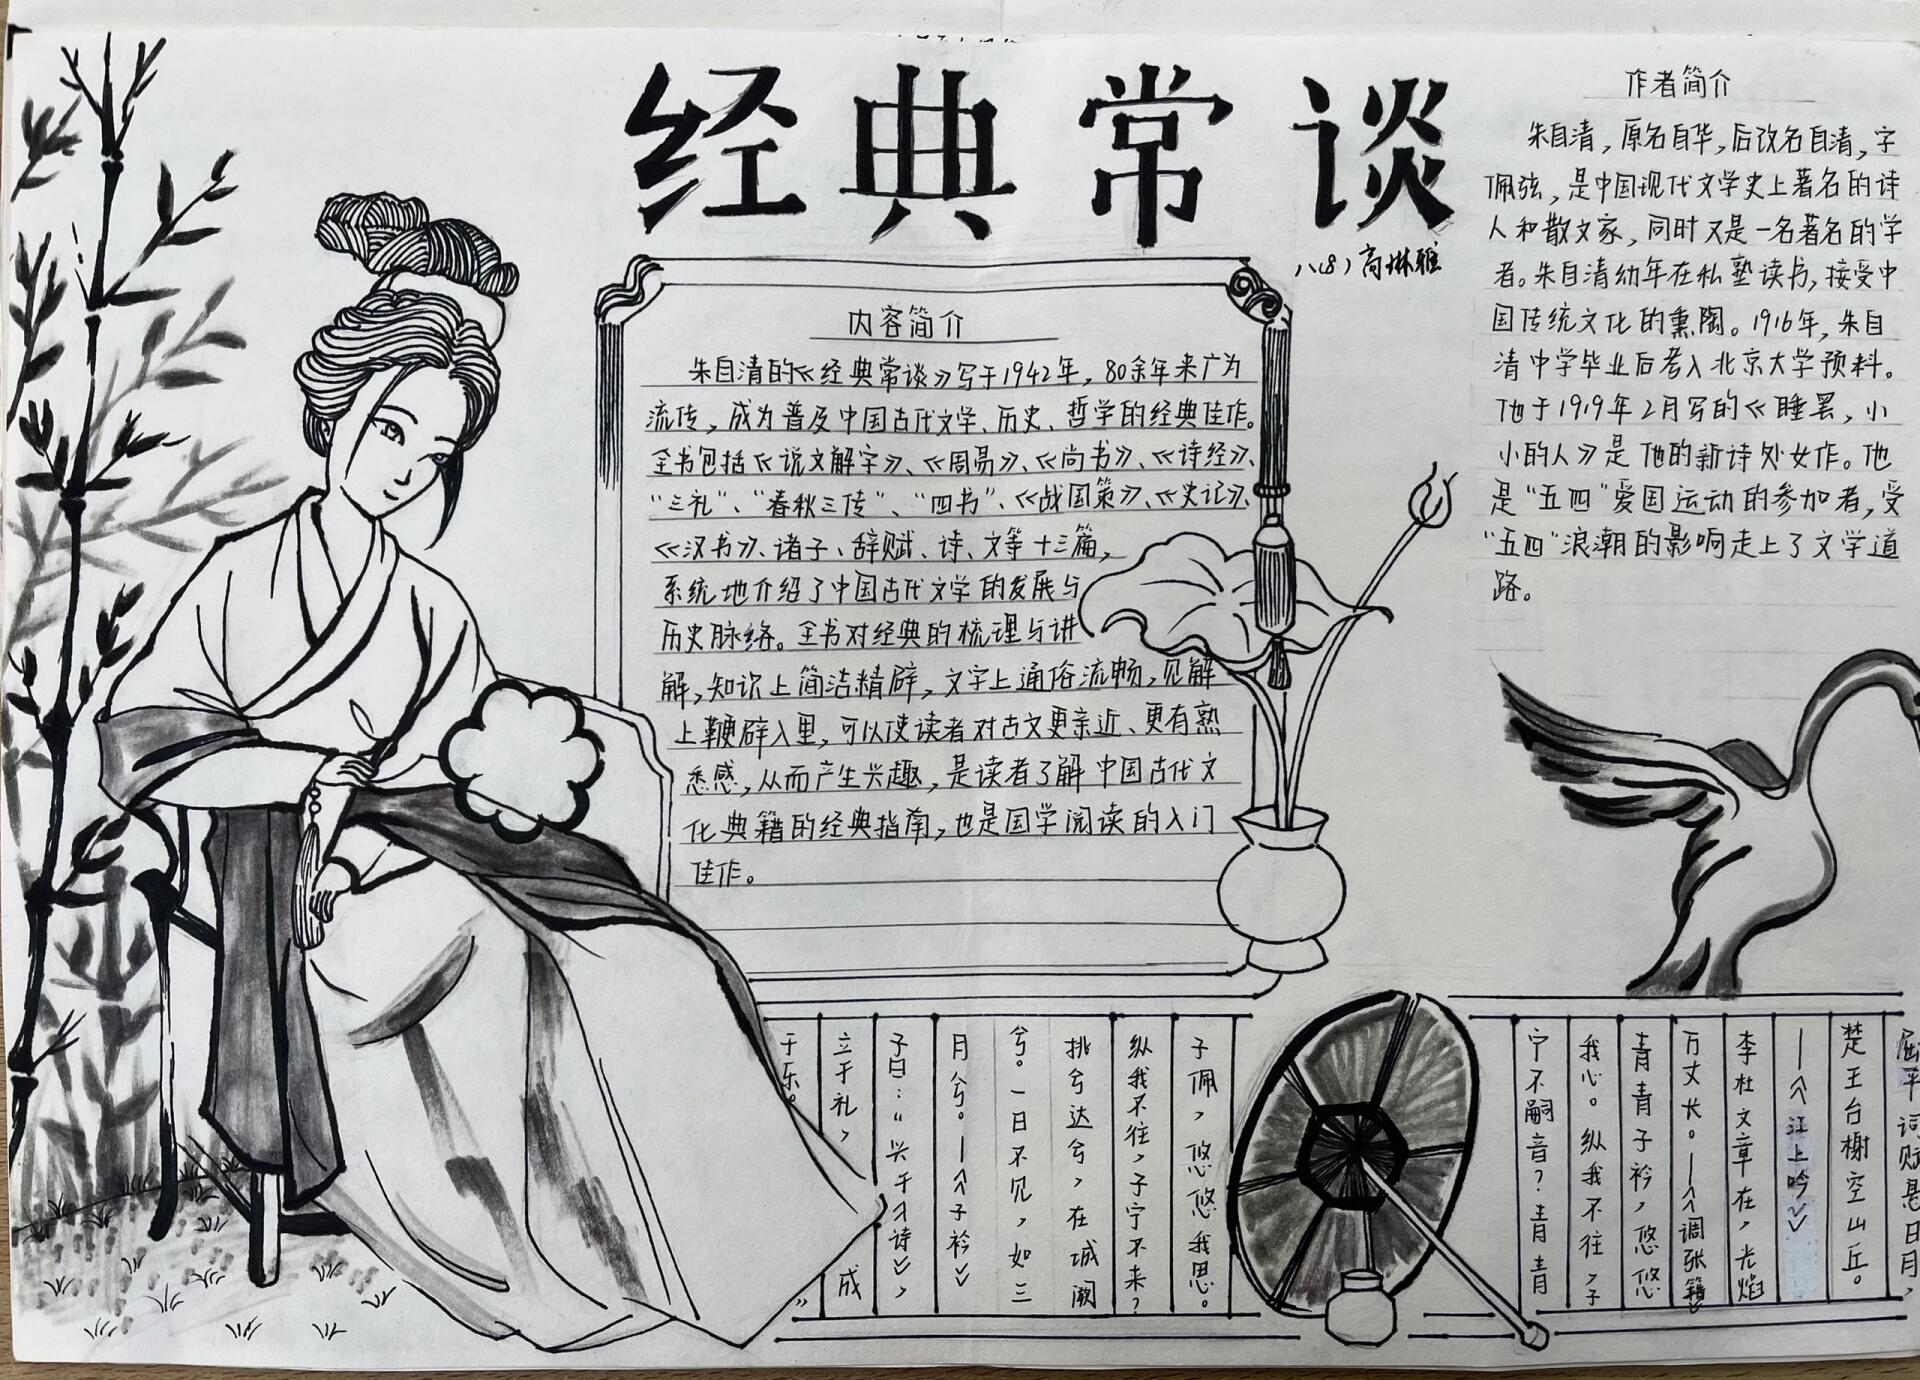 经典常谈
八(8)高琳雅
内容简介
朱自清的《经典常谈》写于1942年，80余年来广为
流传，成为普及中国古代文学、历史、哲学的经典佳作。
全书包括《说文解字》、《周易》、《尚书》、《诗经》、
“三礼”、“春秋三传”、“四书”、《战国策》、《史记》、
《汉书》、诸子、辞赋、诗、文等十三篇，
系统地介绍了中国古代文学的发展与
历史脉络。全书对经典的梳理与讲
解，知识上简洁精辟，文字上通俗流畅，见解
上鞭辟入里，可以使读者对古文更亲近、更有熟
悉感，从而产生兴趣，是读者了解中国古代文
化典籍的经典指南，也是国学阅读的入门
佳作。
作者简介
朱自清，原名自华，后改名自清，字
佩弦，是中国现代文学史上著名的诗
人和散文家，同时又是一名著名的学
者。朱自清幼年在私塾读书，接受中
国传统文化的熏陶。1916年，朱自
清中学毕业后考入北京大学预料。
他于1919年2月写的《睡罢，小
小的人》是他的新诗处女作。他
是“五四”爱国运动的参加者，受
“五四”浪潮的影响走上了文学道
路。
屈平词赋悬日月，
楚王台榭空山丘。
—《江上吟》
李杜文章在，光焰
万丈长。—《调张籍》
青青子衿，悠悠
我心。纵我不往，子
宁不嗣音？青青
子佩，悠悠我思。
纵我不往，子宁不来？
挑兮达兮，在城阙
兮。一日不见，如三
月兮。—《子衿》
子曰：“兴于《诗》，
立于礼，成
于乐。”